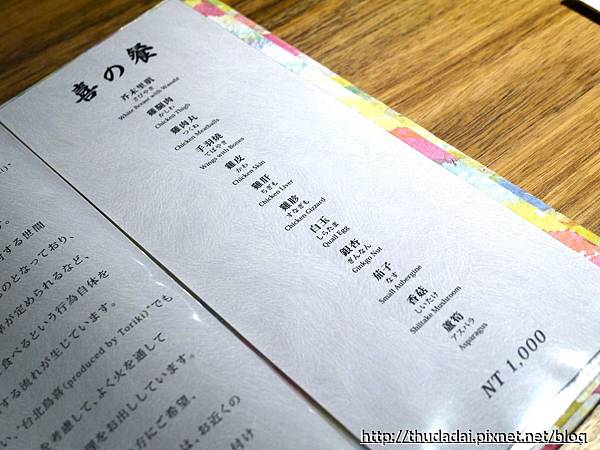 喜の餐
芥末里肌
さびやき
White Breast with Wasabi
雞腿肉
かしわ
Chicken Thigh
雞肉丸
つくね
Chicken Meatballs
手羽燒
てばやき
Wings with Bones
雞皮
かわ
Chicken Skin
雞肝
ちぎも
Chicken Liver
雞胗
すなぎも
Chicken Gizzard
白玉
しらたま
Quail Egg
銀杏
ぎんなん
Ginkgo Nut
茄子
なす
Small Aubergine
香菇
しいたけ
Shiitake Mushroom
蘆筍
アスパラ
Asparagus
NT 1,000
する世間
のとなっており、
が定められるなど、
食べるという行為自体を
する流れが生じています。
い、台北鳥喜(produced by Toriki)"でも
を考慮して、よく火を通して
理をお出ししています。
方にご希望、
は、お近くの
付け
http://thudadai.pixnet.net/blog